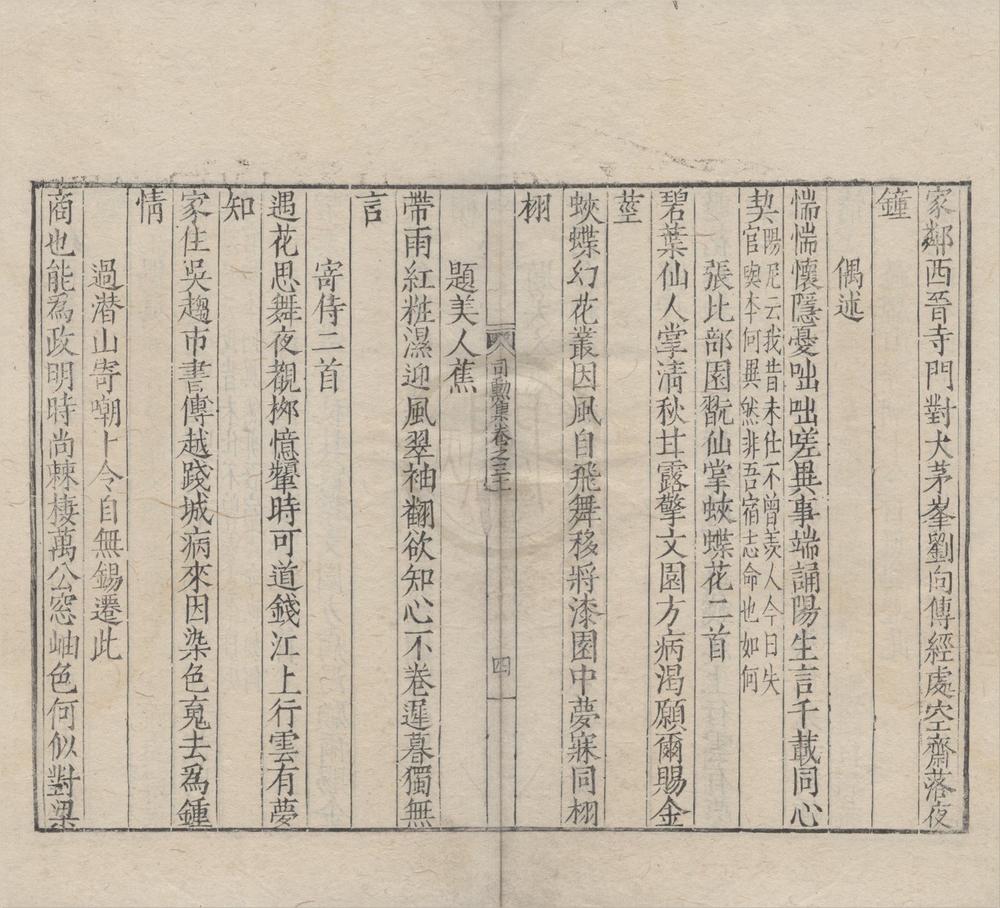 家鄰西晉寺門對大茅峯劉向傳經處空齋落夜
鐘
偶述
惴惴懷隱憂咄咄嗟異事端誦陽生言千載同心
契陽尼云我昔未仕不曾羨人今日失
官與本何異然非吾宿志命也如何
張比部園翫仙掌蛺蝶花二首
碧葉仙人掌清秋甘露擎文園方病渴願爾賜金
莖
蛺蝶幻花叢因風自飛舞移將漆園中夢寐同栩
栩
題美人蕉
司勳集卷之三
四
帶雨紅粧濕迎風翠袖翻欲知心不卷遲暮獨無
言
寄侍二首
遇花思舞夜觀栁憶顰時可道錢江上行雲有夢
知
家住吳趨市書傳越踐城病來因染色寃去爲鍾
情
過潜山寄嘲卜令自無錫遷此
商也能爲政明時尚棘棲萬公窓岫色何似對梁